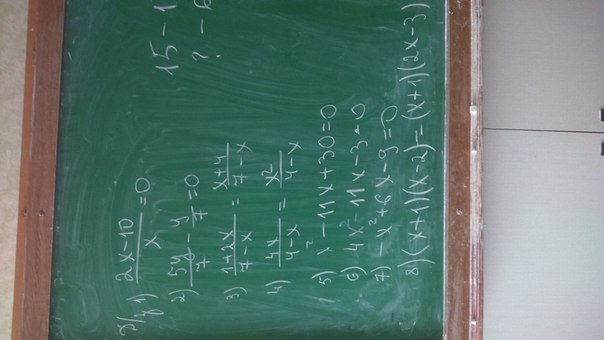 Д/з 1) (2x-10)/x = 0
2) 5y/7 - y/7 = 0
3) (1+2x)/(7-x) = (x+4)/(7-x)
4) 4x/(4-x) = x²/(4-x)
5) x² - 11x + 30 = 0
6) 4x² - 11x - 3 = 0
7) -x² + 6x - 9 = 0
8) (x+1)(x-2) = (x+1)(2x-3)
15 - 1
? - 6